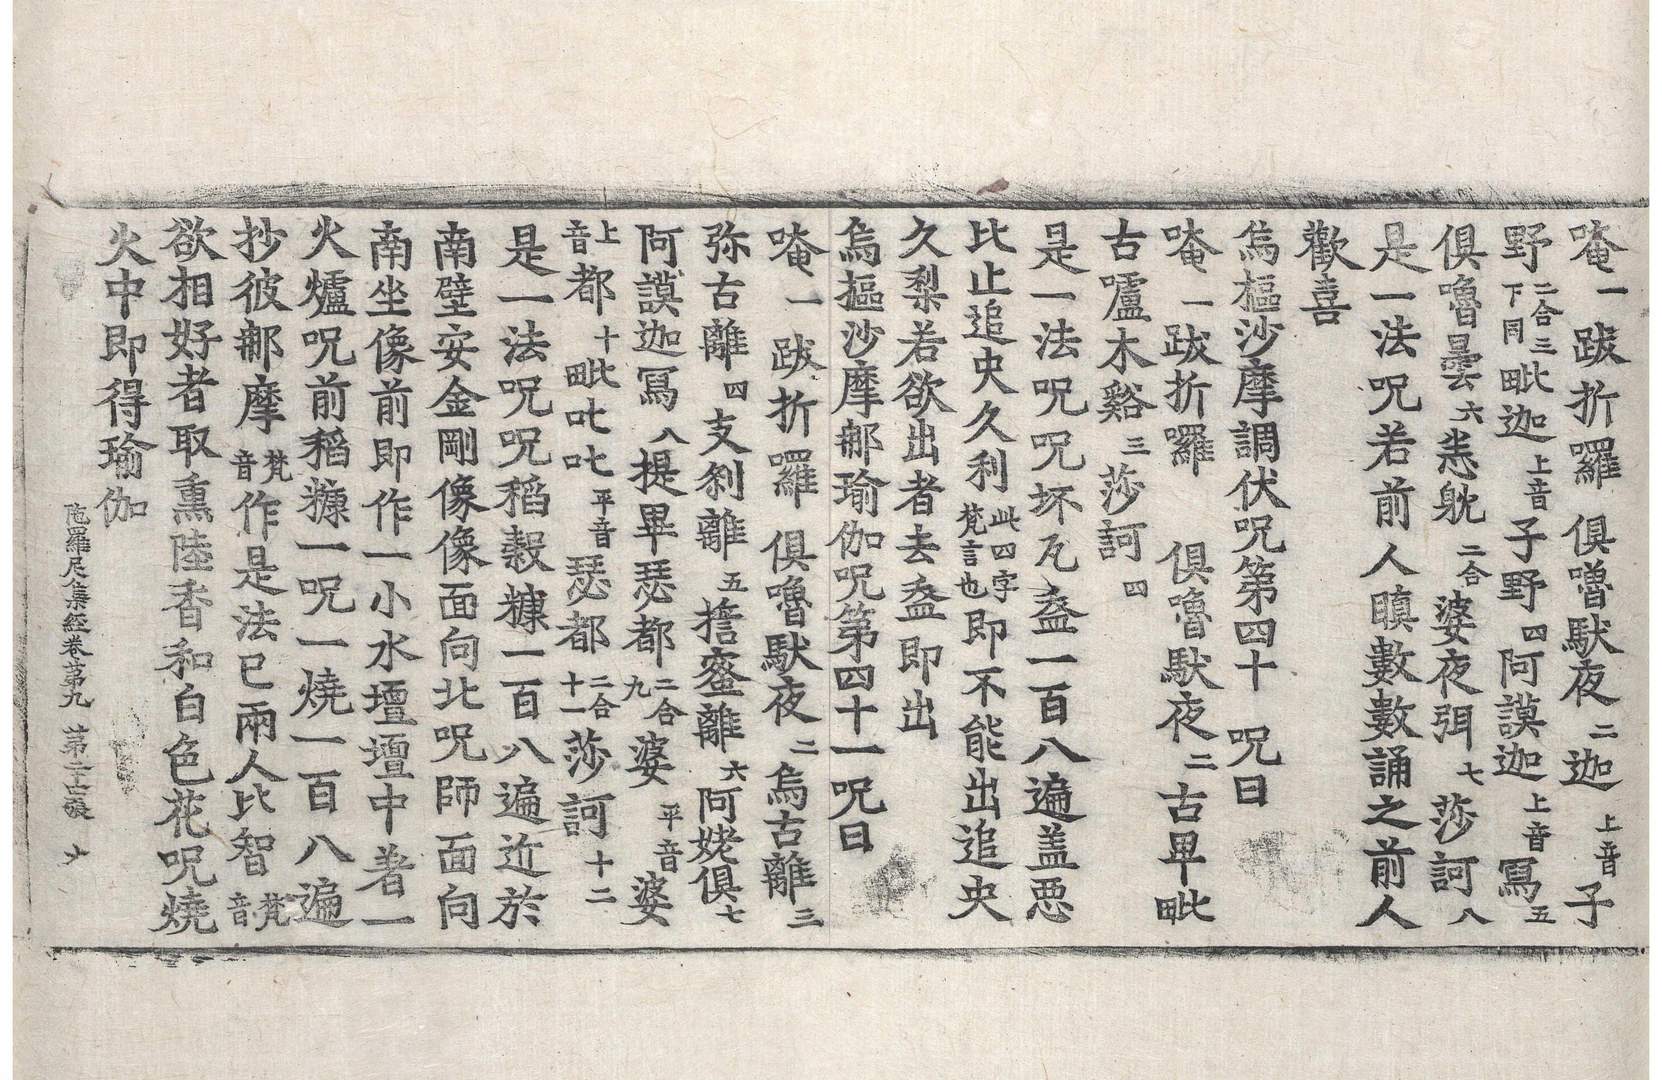 唵一跋折囉俱嚕馱夜二迦上音子
野二合三下同毗迦上音子野四阿謨迦上音寫五
俱嚕曇六恙躭二合婆夜弭七莎訶八
是一法呪若前人瞋數數誦之前人
歡喜
烏樞沙摩調伏呪第四十 呪曰
唵一跋折囉 俱嚕馱夜二古畢毗
古嚧木谿三莎訶四
是一法呪呪坏瓦盋一百八遍盖惡
比止追史久利此四字梵言也即不能出追央
久梨若欲出者去盋即出
烏樞沙摩郍瑜伽呪第四十一呪曰
唵一跋折囉 俱嚕馱夜二烏古離三
弥古離四支剎離五擔蜜離六阿姥俱七
阿謨迦寫八提畢瑟都二合九婆平音婆
上音都十毗吐吐平音瑟都二合十一莎訶十二
是一法呪呪稻穀糠一百八遍近於
南壁安金剛像像面向北呪師面向
南坐像前即作一小水壇壇中著一
火爐呪前稻糠一呪一燒一百八遍
抄彼郍摩梵音作是法已兩人比智梵音
欲相好者取熏陸香和白色花呪燒
火中即得瑜伽
陁羅尼集經卷第九 第二十三張 少